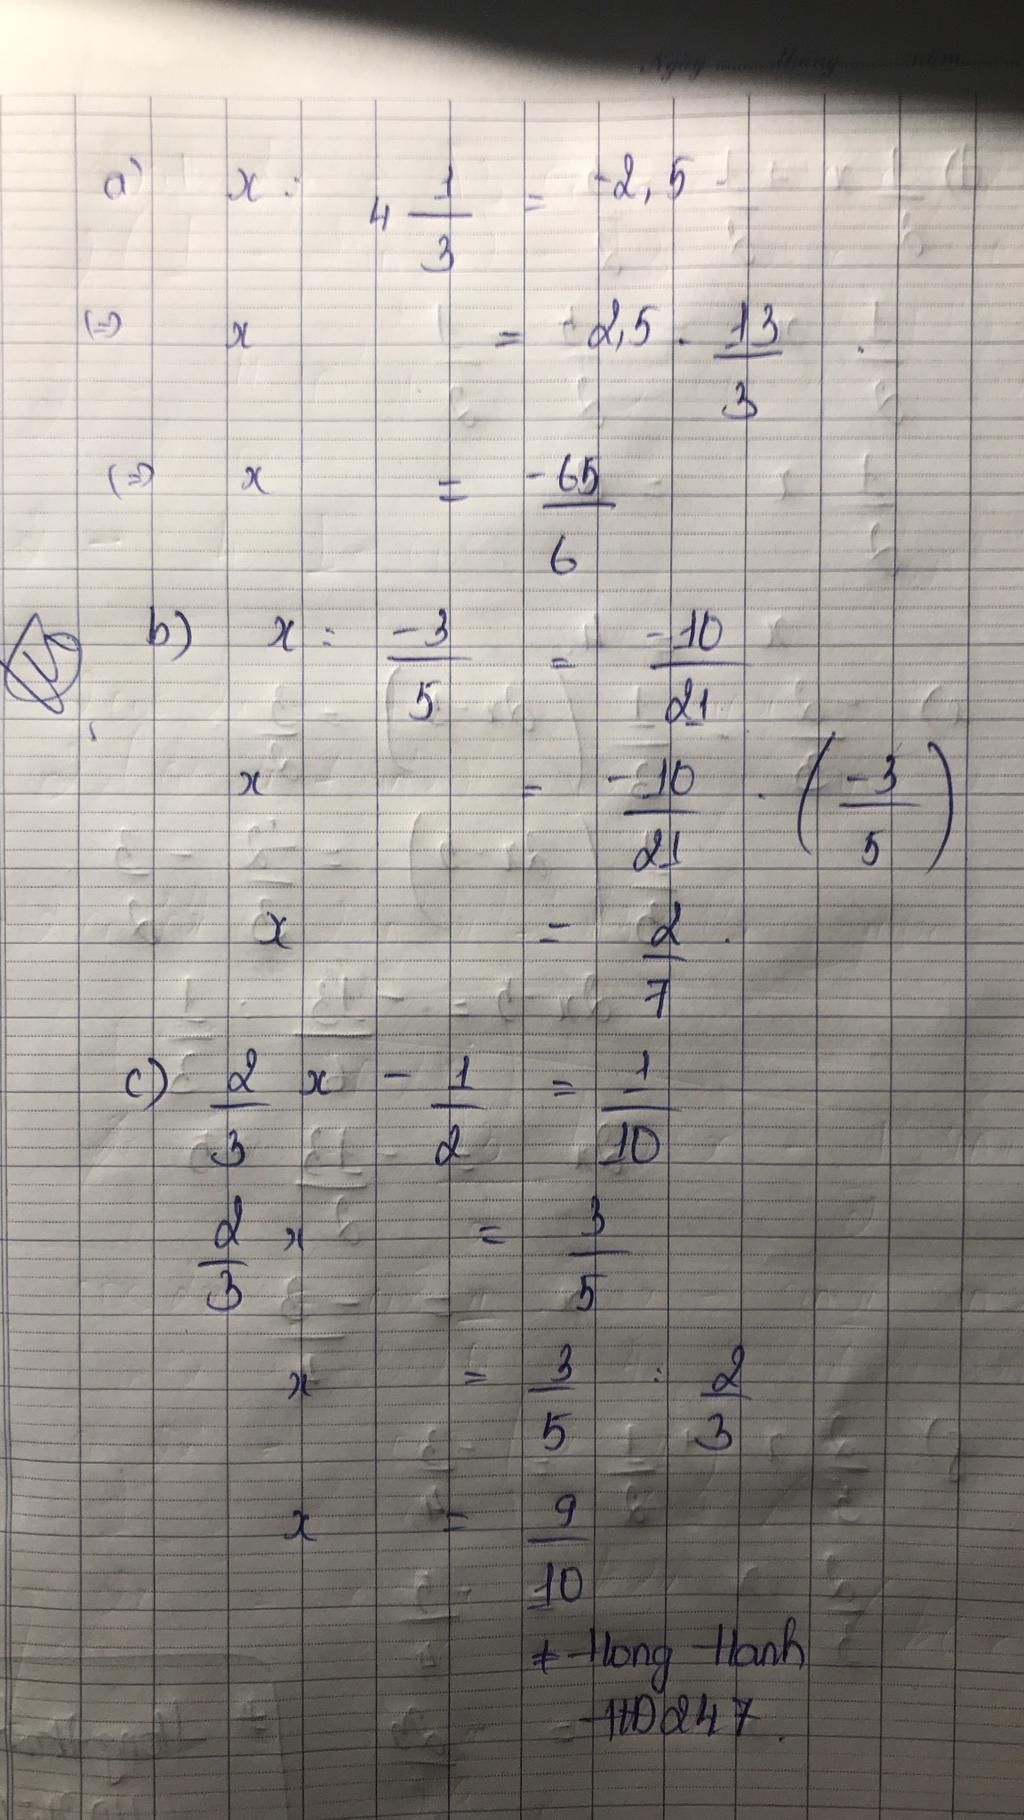 Ngày ...... tháng ...... năm
a) x : 4 1/3 = -2,5
(=) x = -2,5 . 13/3 .
(=) x = -65/6
b) x : -3/5 = -10/21
x = -10/21 . (-3/5)
x = 2/7 .
c) 2/3 x - 1/2 = 1/10
2/3 x = 3/5
x = 3/5 : 2/3
x = 9/10
# Hong Hanh
HD247.